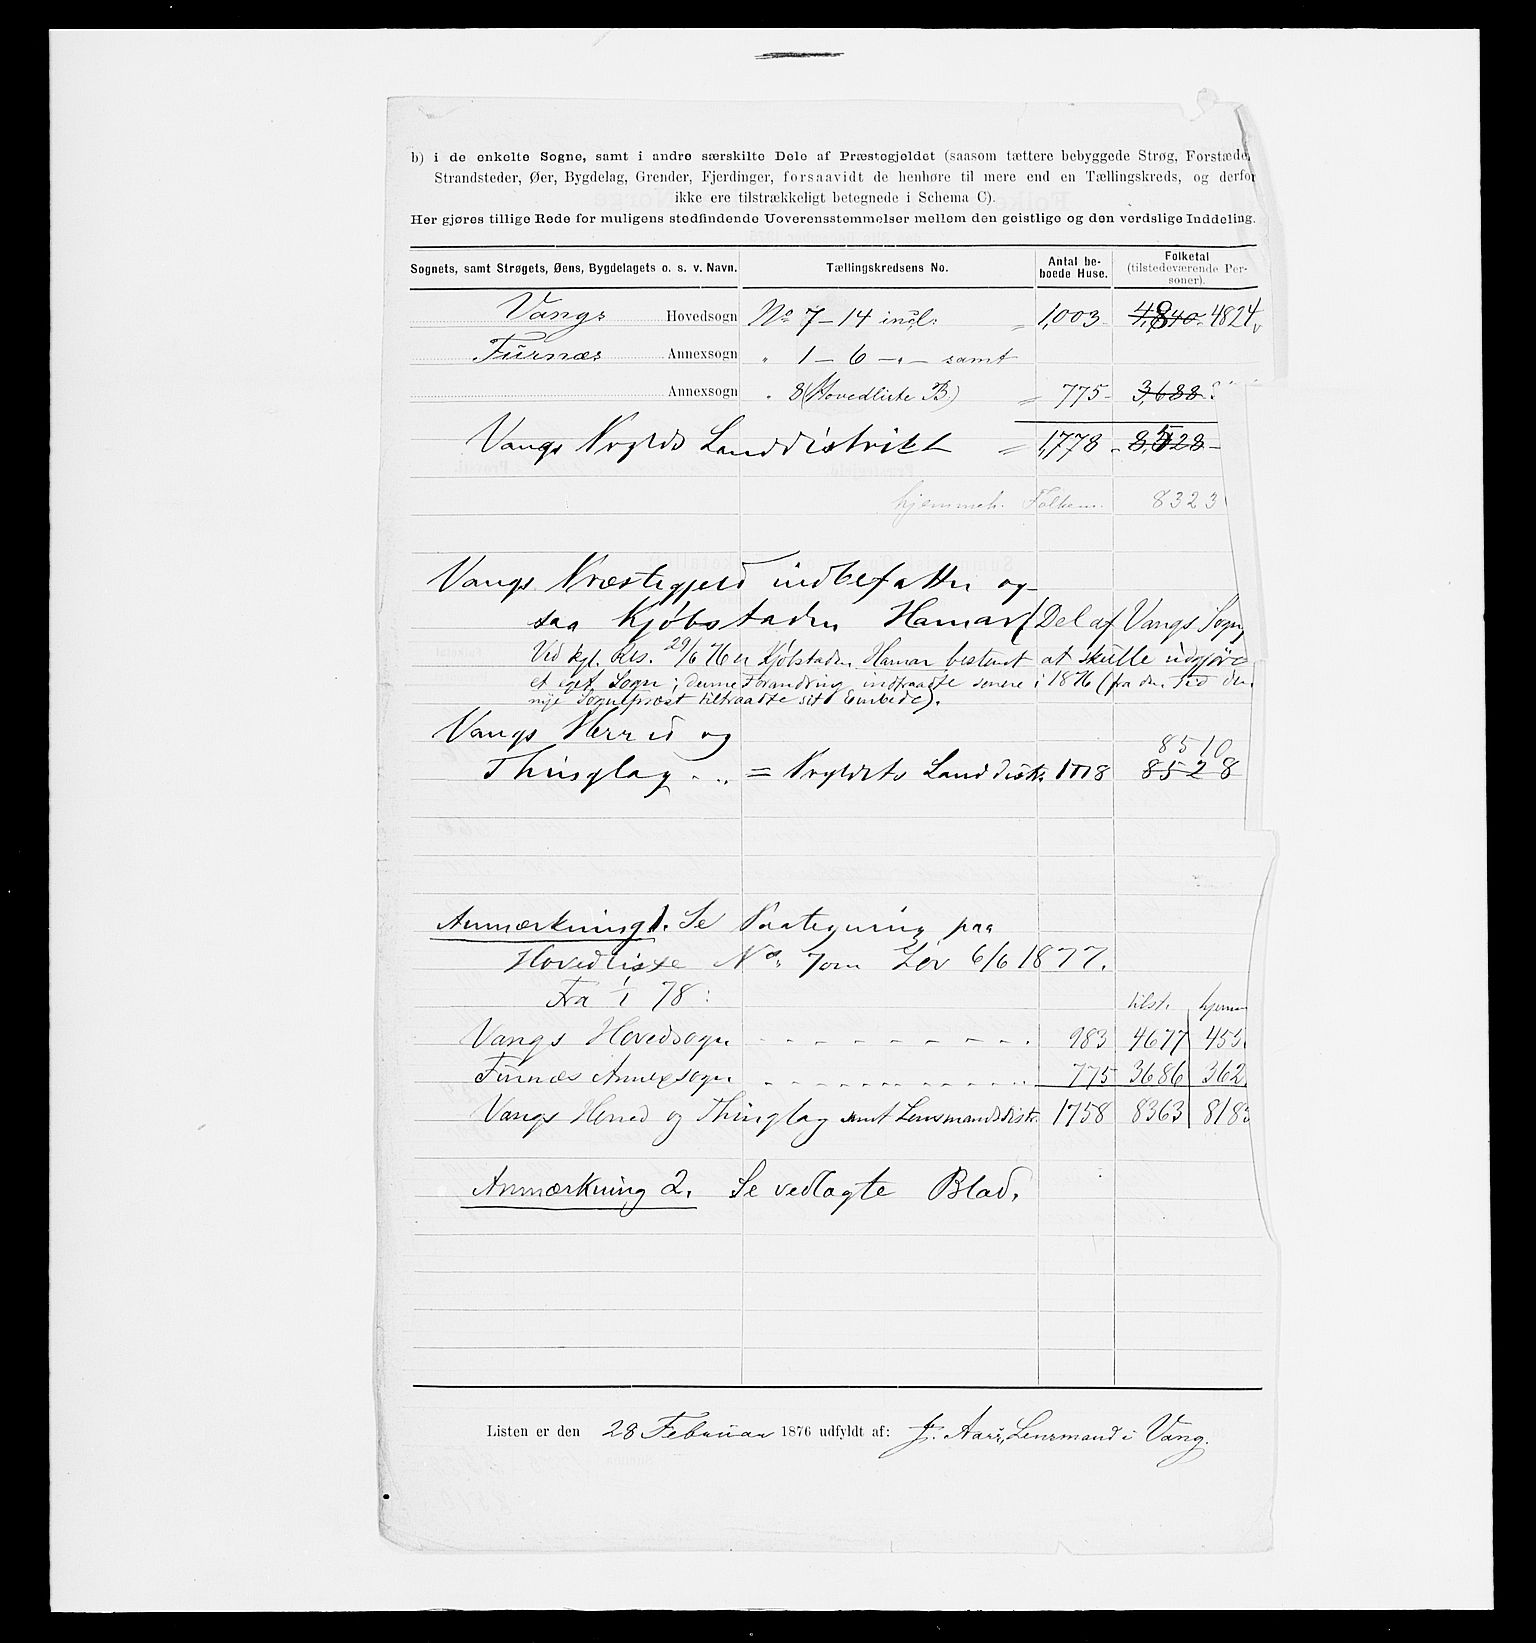 b) i de enkelte Sogne, samt i andre særskilte Dele af Præstegjeldet (saasom tættere bebyggede Strøg, Forstæder,
Strandsteder, Øer, Bygdelag, Grender, Fjerdinger, forsaavidt de henhøre til mere end en Tællingskreds, og derfor
ikke ere tilstrækkeligt betegnede i Schema C).
Her gjøres tillige Rede for muligens stedfindende Uoverensstemmelser mellem den geistlige og den verdslige Inddeling.
Sognets, samt Strøgets, Øens, Bygdelagets o. s. v. Navn. Tællingskredsens No. Antal be- Folketal
boede Huse. (tilstedeværende Per-
soner).
Vangs Hovedsogn No 7 - 14 incl: 1,003 4,840 4824
Furnæs Annexsogn " 1 - 6 - " - samt
Annexsogn " 8 (Hovedliste B) = 775 3,688
Vangs Prgjlds Landdistrikt = 1,778 8,528
hjemmeh. Folkem. 8323
Vangs Præstegjeld indbefatter og-
saa Kjøbstaden Hamar (Del af Vangs Sogn
Ved kgl. Res. 29/6 76 er Kjøbstaden Hamar bestemt at skulle udgjøre
et eget Sogn; denne Forandring indtraadte senere i 1876 (fra den Tid den
nye Sognepræst tiltraadte sit Embede).
Vangs Herred og
8510
Thinglag . .. = Prgjldets Landdistr. 1778 8528
Anmærkning 1. Se Paategning paa
Hovedliste No. 7 om Lov 6/6 1877.
Fra 1/1 78: tilst. hjemm
Vangs Hovedsogn - - - - - - - - - 983 4677 455
Furnæs Annexsogn - - - - - - - - - 775 3686 362
Vangs Herred og Thinglag samt Lensmandsdistr. 1758 8363 8183
Anmærkning 2. Se vedlagte Blad.
Listen er den 28 Februar 1876 udfyldt af: Lensmand i Vang.